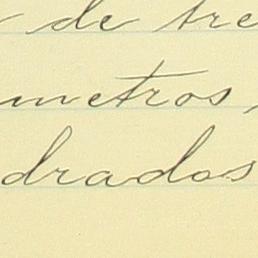 de tre
metros,
drados